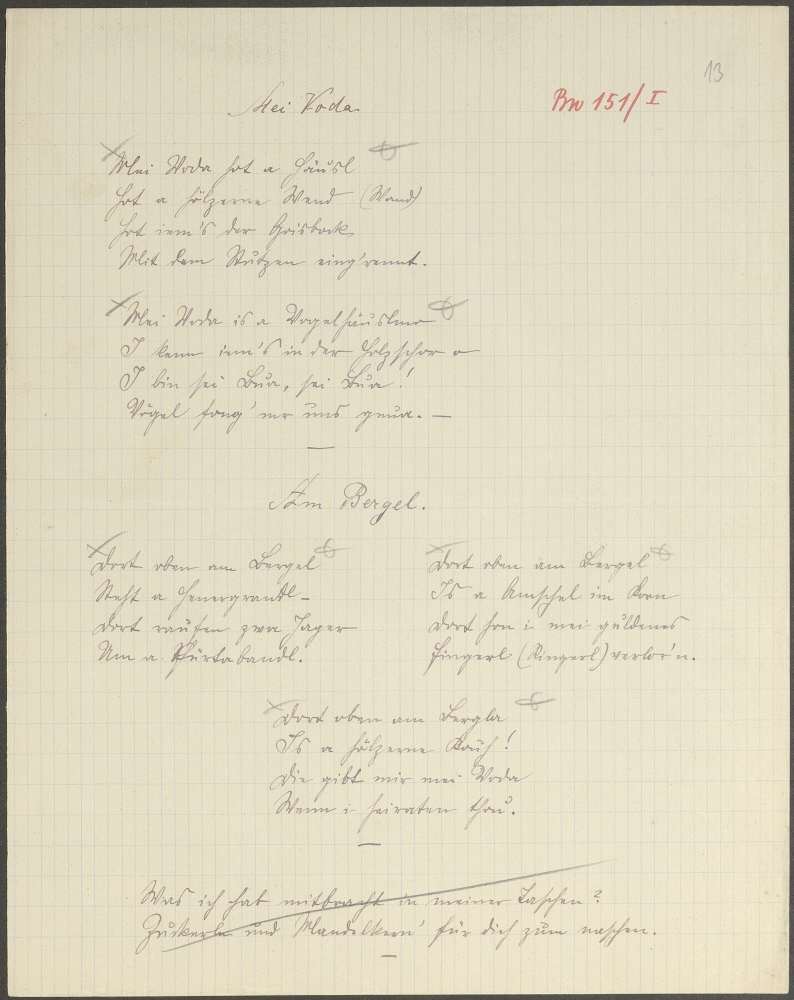 13
Bw 151/I
Mei Voda
Mei Voda hot a Häusl
Hot a hölzerne Wend (Wand)
Hot iem's der Goisbock
Mit dem Stutzen eing'rennt.
Mei Voda is a Vogelhäuslmo
I kenn iem's in der Holzschor o
I bin sei Bua, sei Bua!
Vögel fong' mr uns genua. —
Am Bergel.
Dort oben am Bergel
Steht a
Dort raufen zwa Jager
Um a Fürtabandl.
Dort oben am Bergel
Is a Amschel im Korn
Dort hon i mei guldenes
Fingerl (Ringerl) verlor'n.
Dort oben am Bergla
Is a hölzerne Kuh!
Die gibt mir mei Voda
Wenn i heiraten thou.
Was ich hab mitbracht in meiner Taschen?
Zuckerln und Mandelkern' für dich zum naschen.